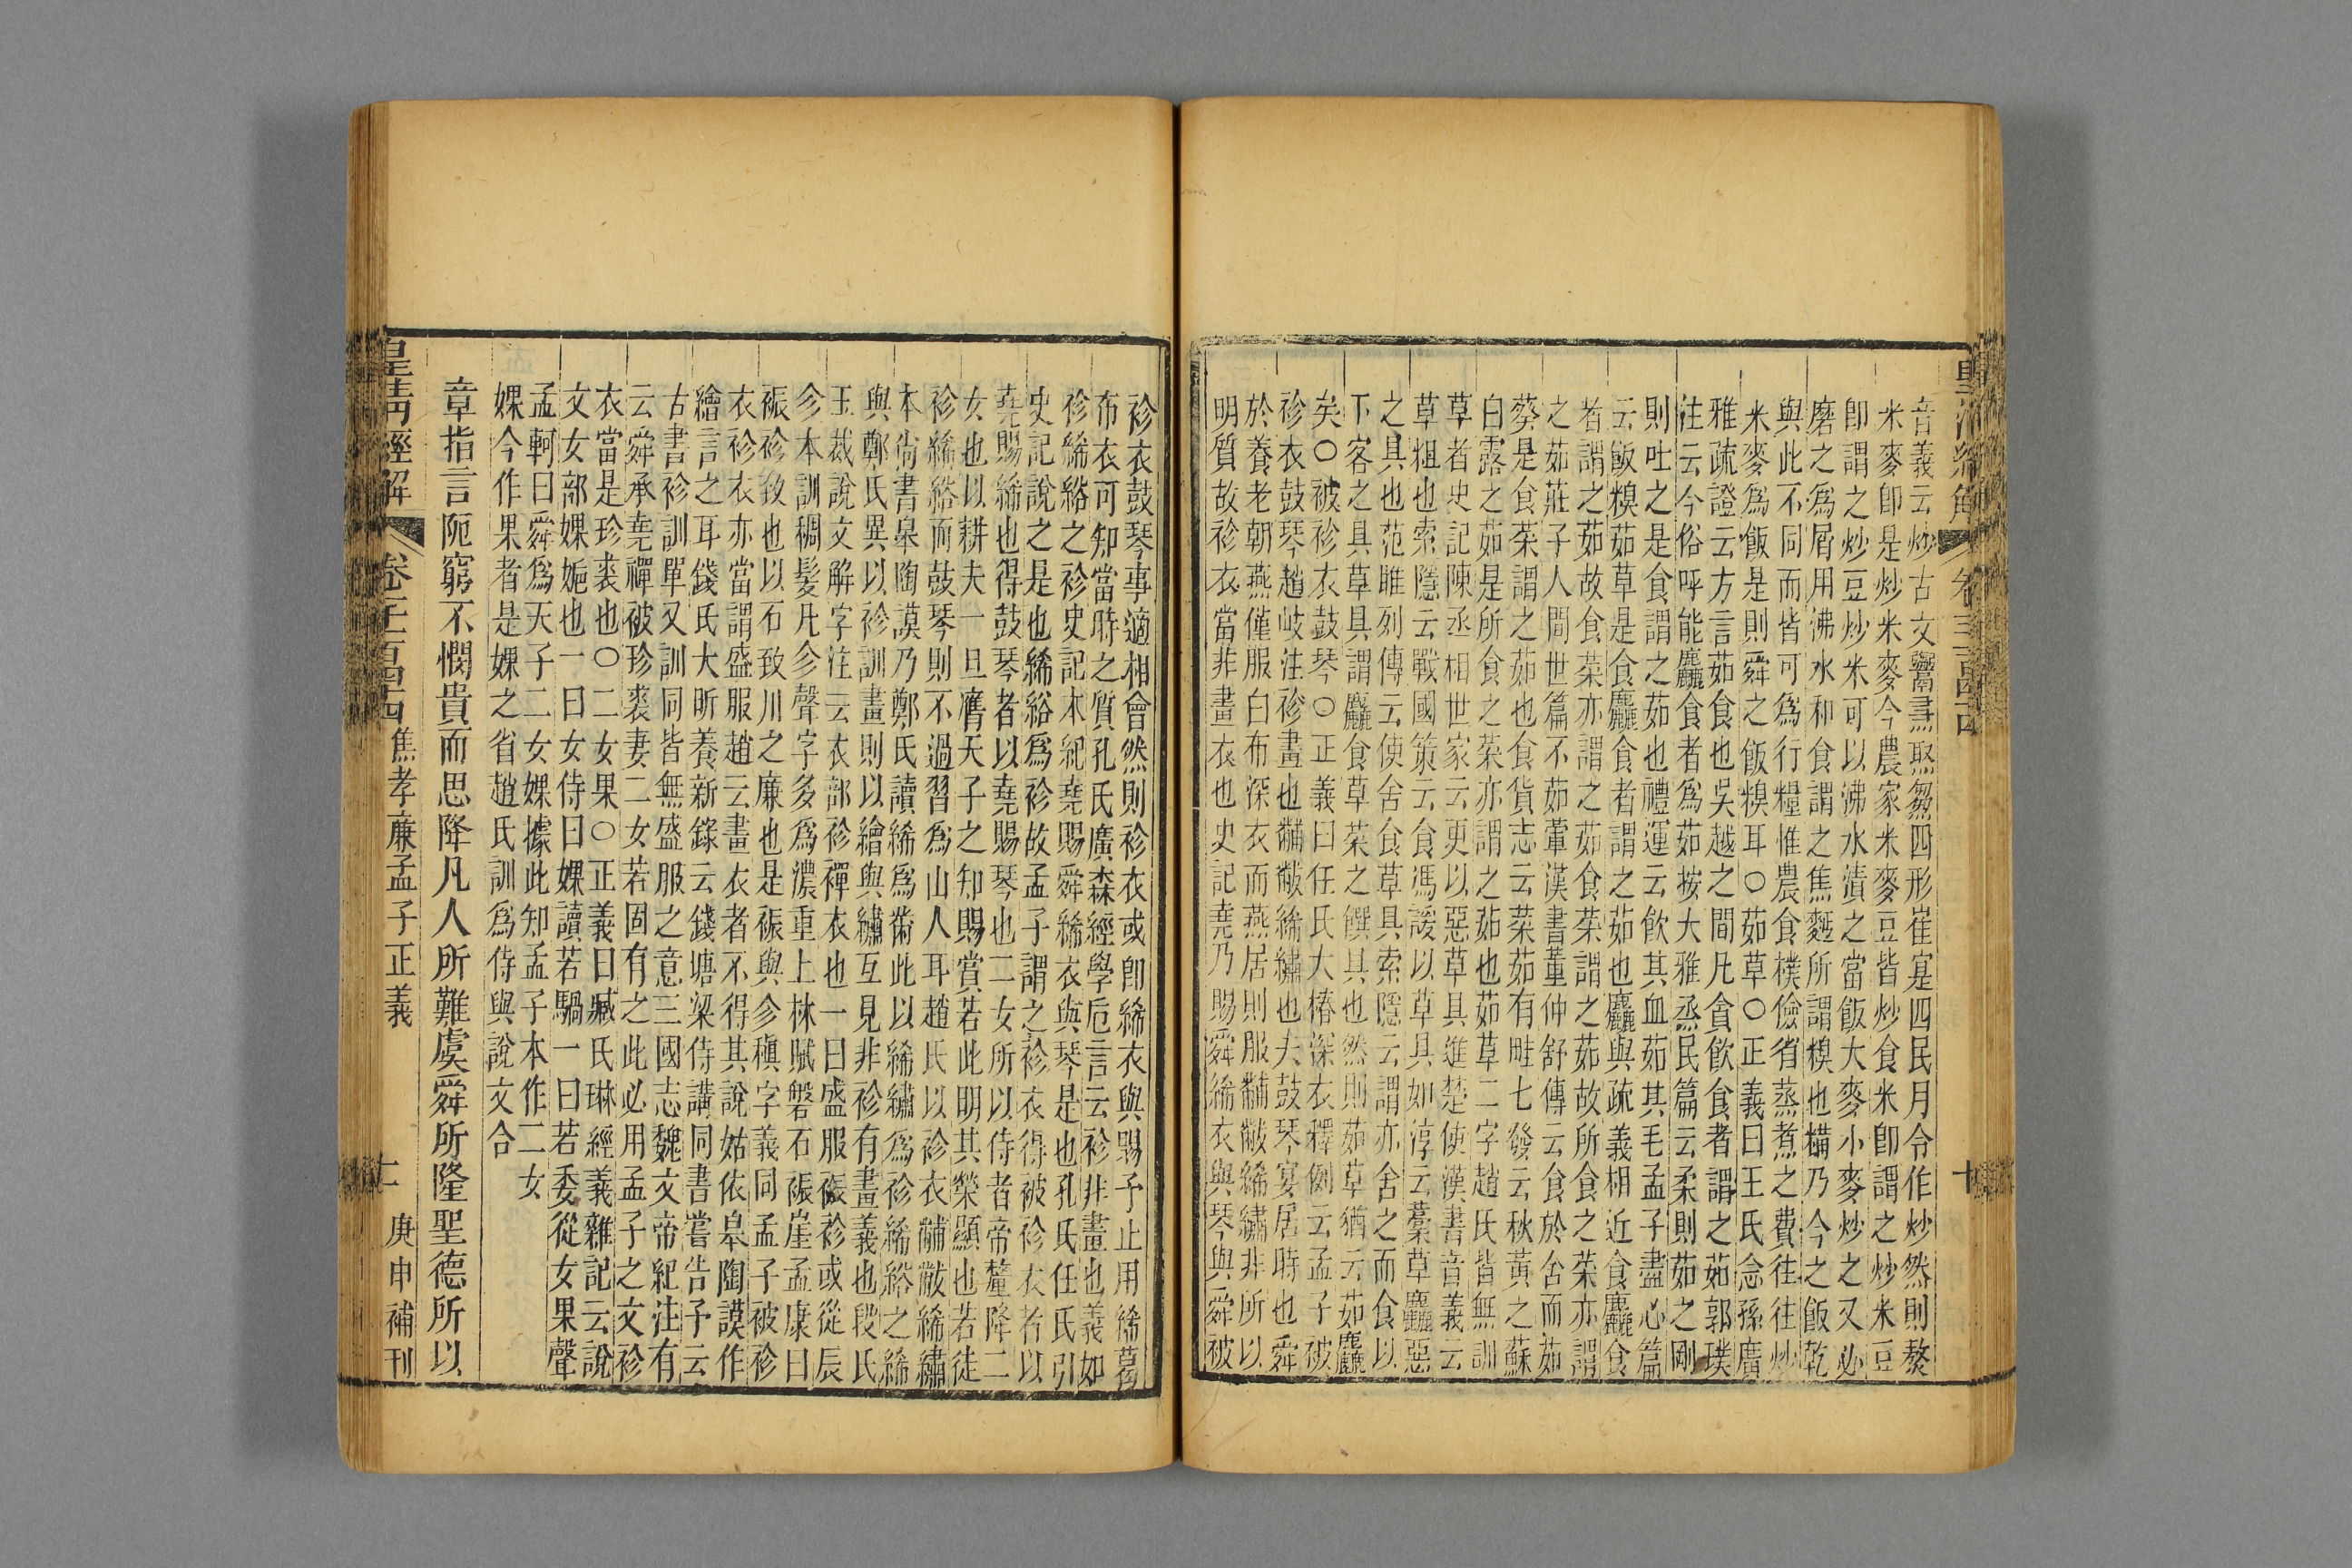 皇清經解 卷千一百四十四 十
音義云炒古文鬻𤋱焣㷅四形崔寔四民月令作炒然則熬
米麥卽是炒米麥今農家米麥豆皆炒食米卽謂之炒米豆
卽謂之炒豆炒米可以沸水漬之當飯大麥小麥炒之又必
磨之爲屑用沸水和食謂之焦麨所謂糗也糒乃今之飯乾
與此不同而皆可爲行糧惟農食樸儉省蒸煮之費往往炒
米麥爲飯是則舜之飯糗耳○茹草○正義曰王氏念孫廣
雅疏證云方言茹食也吳越之間凡貪飲食者謂之茹郭璞
注云今俗呼能麤食者爲茹按大雅烝民篇云柔則茹之剛
則吐之是食謂之茹也禮運云飲其血茹其毛孟子盡心篇
云飯糗茹草是食麤食者謂之茹也麤與疏義相近食麤食
者謂之茹故食菜亦謂之茹食菜謂之茹故所食之菜亦謂
之茹莊子人間世篇不茹葷漢書董仲舒傳云食於舍而茹
葵是食菜謂之茹也食貨志云菜茹有畦七發云秋黃之蘇
白露之茹是所食之菜亦謂之茹也茹草二字趙氏皆無訓
草者史記陳丞相世家云更以惡草具進楚使漢書音義云
草粗也索隱云戰國策云食馮諼以草具如淳云藁草麤惡
之具也范雎列傳云使舍食草具索隱云謂亦舍之而食以
下客之具草具謂麤食草菜之饌具也然則茹草猶云茹麤
矣○被袗衣鼓琴○正義曰任氏大椿深衣釋例云孟子被
袗衣鼓琴趙岐注袗畫也黼黻絺繡也夫鼓琴宴居時也舜
於養老朝燕僅服白布深衣而燕居則服黼黻絺繡非所以
明質故袗衣當非畫衣也史記堯乃賜舜絺衣與琴與舜被
袗衣鼓琴事適相會然則袗衣或卽絺衣與賜予止用絺葛
布衣可知當時之質孔氏廣森經學卮言云袗非畫也義如
袗絺綌之袗史記本紀堯賜舜絺衣與琴是也孔氏任氏引
史記說之是也絺綌爲袗故孟子謂之袗衣得被袗衣者以
堯賜絺也得鼓琴者以堯賜琴也二女所以侍者帝釐降二
女也以耕夫一旦膺天子之知賜賞若此明其榮顯也若徒
袗絺綌而鼓琴則不過習爲山人耳趙氏以袗衣黼黻絺繡
本尙書皋陶謨乃鄭氏讀絺爲黹此以絺繡爲袗絺綌之絺
與鄭氏異以袗訓畫則以繪與繡互見非袗有畫義也段氏
玉裁說文解字注云衣部袗襌衣也一曰盛服裖袗或從辰
㐱本訓稠髮凡㐱聲字多爲濃重上林賦磐石裖崖孟康曰
裖袗致也以石致川之廉也是裖與㐱稹字義同孟子被袗
衣袗衣亦當謂盛服趙云畫衣者不得其說姑依皋陶謨作
繪言之耳錢氏大昕養新錄云錢塘梁侍講同書嘗告予云
古書袗訓單又訓同皆無盛服之意三國志魏文帝紀注有
云舜承堯禪被珍裘妻二女若固有之此必用孟子之文袗
衣當是珍裘也○二女果○正義曰臧氏琳經義雜記云說
文女部婐婉也一曰女侍曰婐讀若騧一曰若委從女果聲
孟軻曰舜爲天子二女婐據此知孟子本作二女
婐今作果者是婐之省趙氏訓爲侍與說文合
章指言阨窮不憫貴而思降凡人所難虞舜所隆聖德所以
皇清經解 卷千一百四十四 焦孝廉孟子正義 十一 庚申補刊